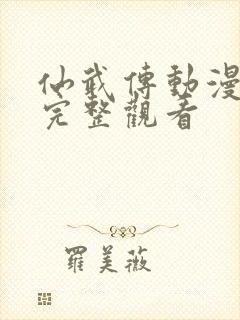 仙武傳動漫
完整觀看
羅美薇